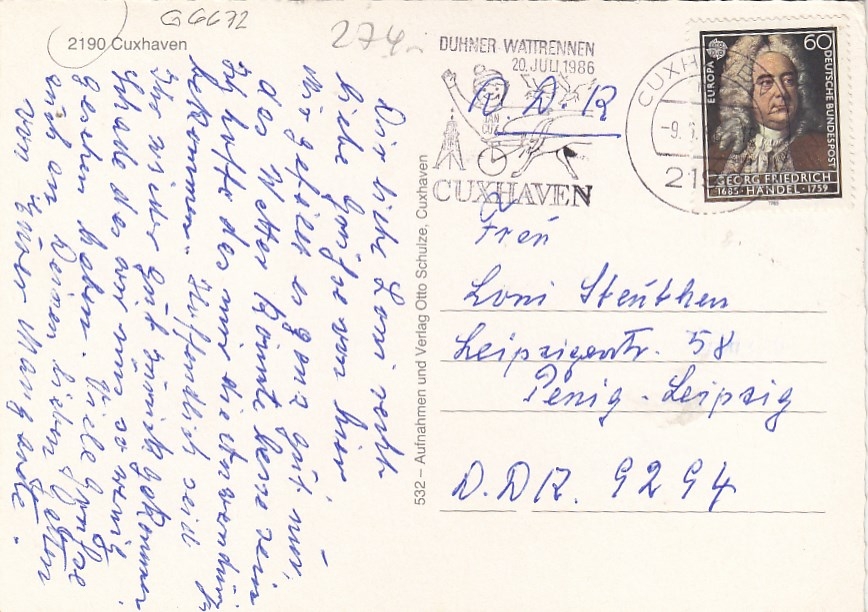 GGG72
2190 Cuxhaven
274.-
DUHNER WATTRENNEN
20. JULI 1986
CUXHAVEN
D.D.R
CUXH
-9.
21
EUROPA
60
DEUTSCHE BUNDESPOST
GEORG FRIEDRICH
1685 · HÄNDEL · 1759
Dir liebe Loni recht
liebe Grüße von hier
Mir gefällt es ganz gut nur,
das Wetter könnte besser sein
Ich hoffe das mir die
bekommen. Hoffendlich seid
Ihr wieder gut zurück gekommen
Schade das wir uns so wenig
gesehen haben. Viele Grüße
auch an Deinen lieben
von Eurer
532 – Aufnahmen und Verlag Otto Schulze, Cuxhaven
Frau
Loni Steubhen
Leipzigerstr. 58
Penig - Leipzig
D.DR. 9294